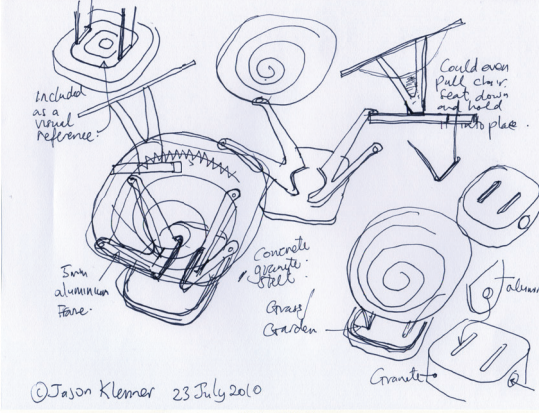 Included
as a
visual
reference.
Could even
pull chair
seat down
and hold
it into place.
5mm
aluminium
frame.
Concrete
granite
Grass/
Garden
Granite
© Jason Klenner 23 July 2010